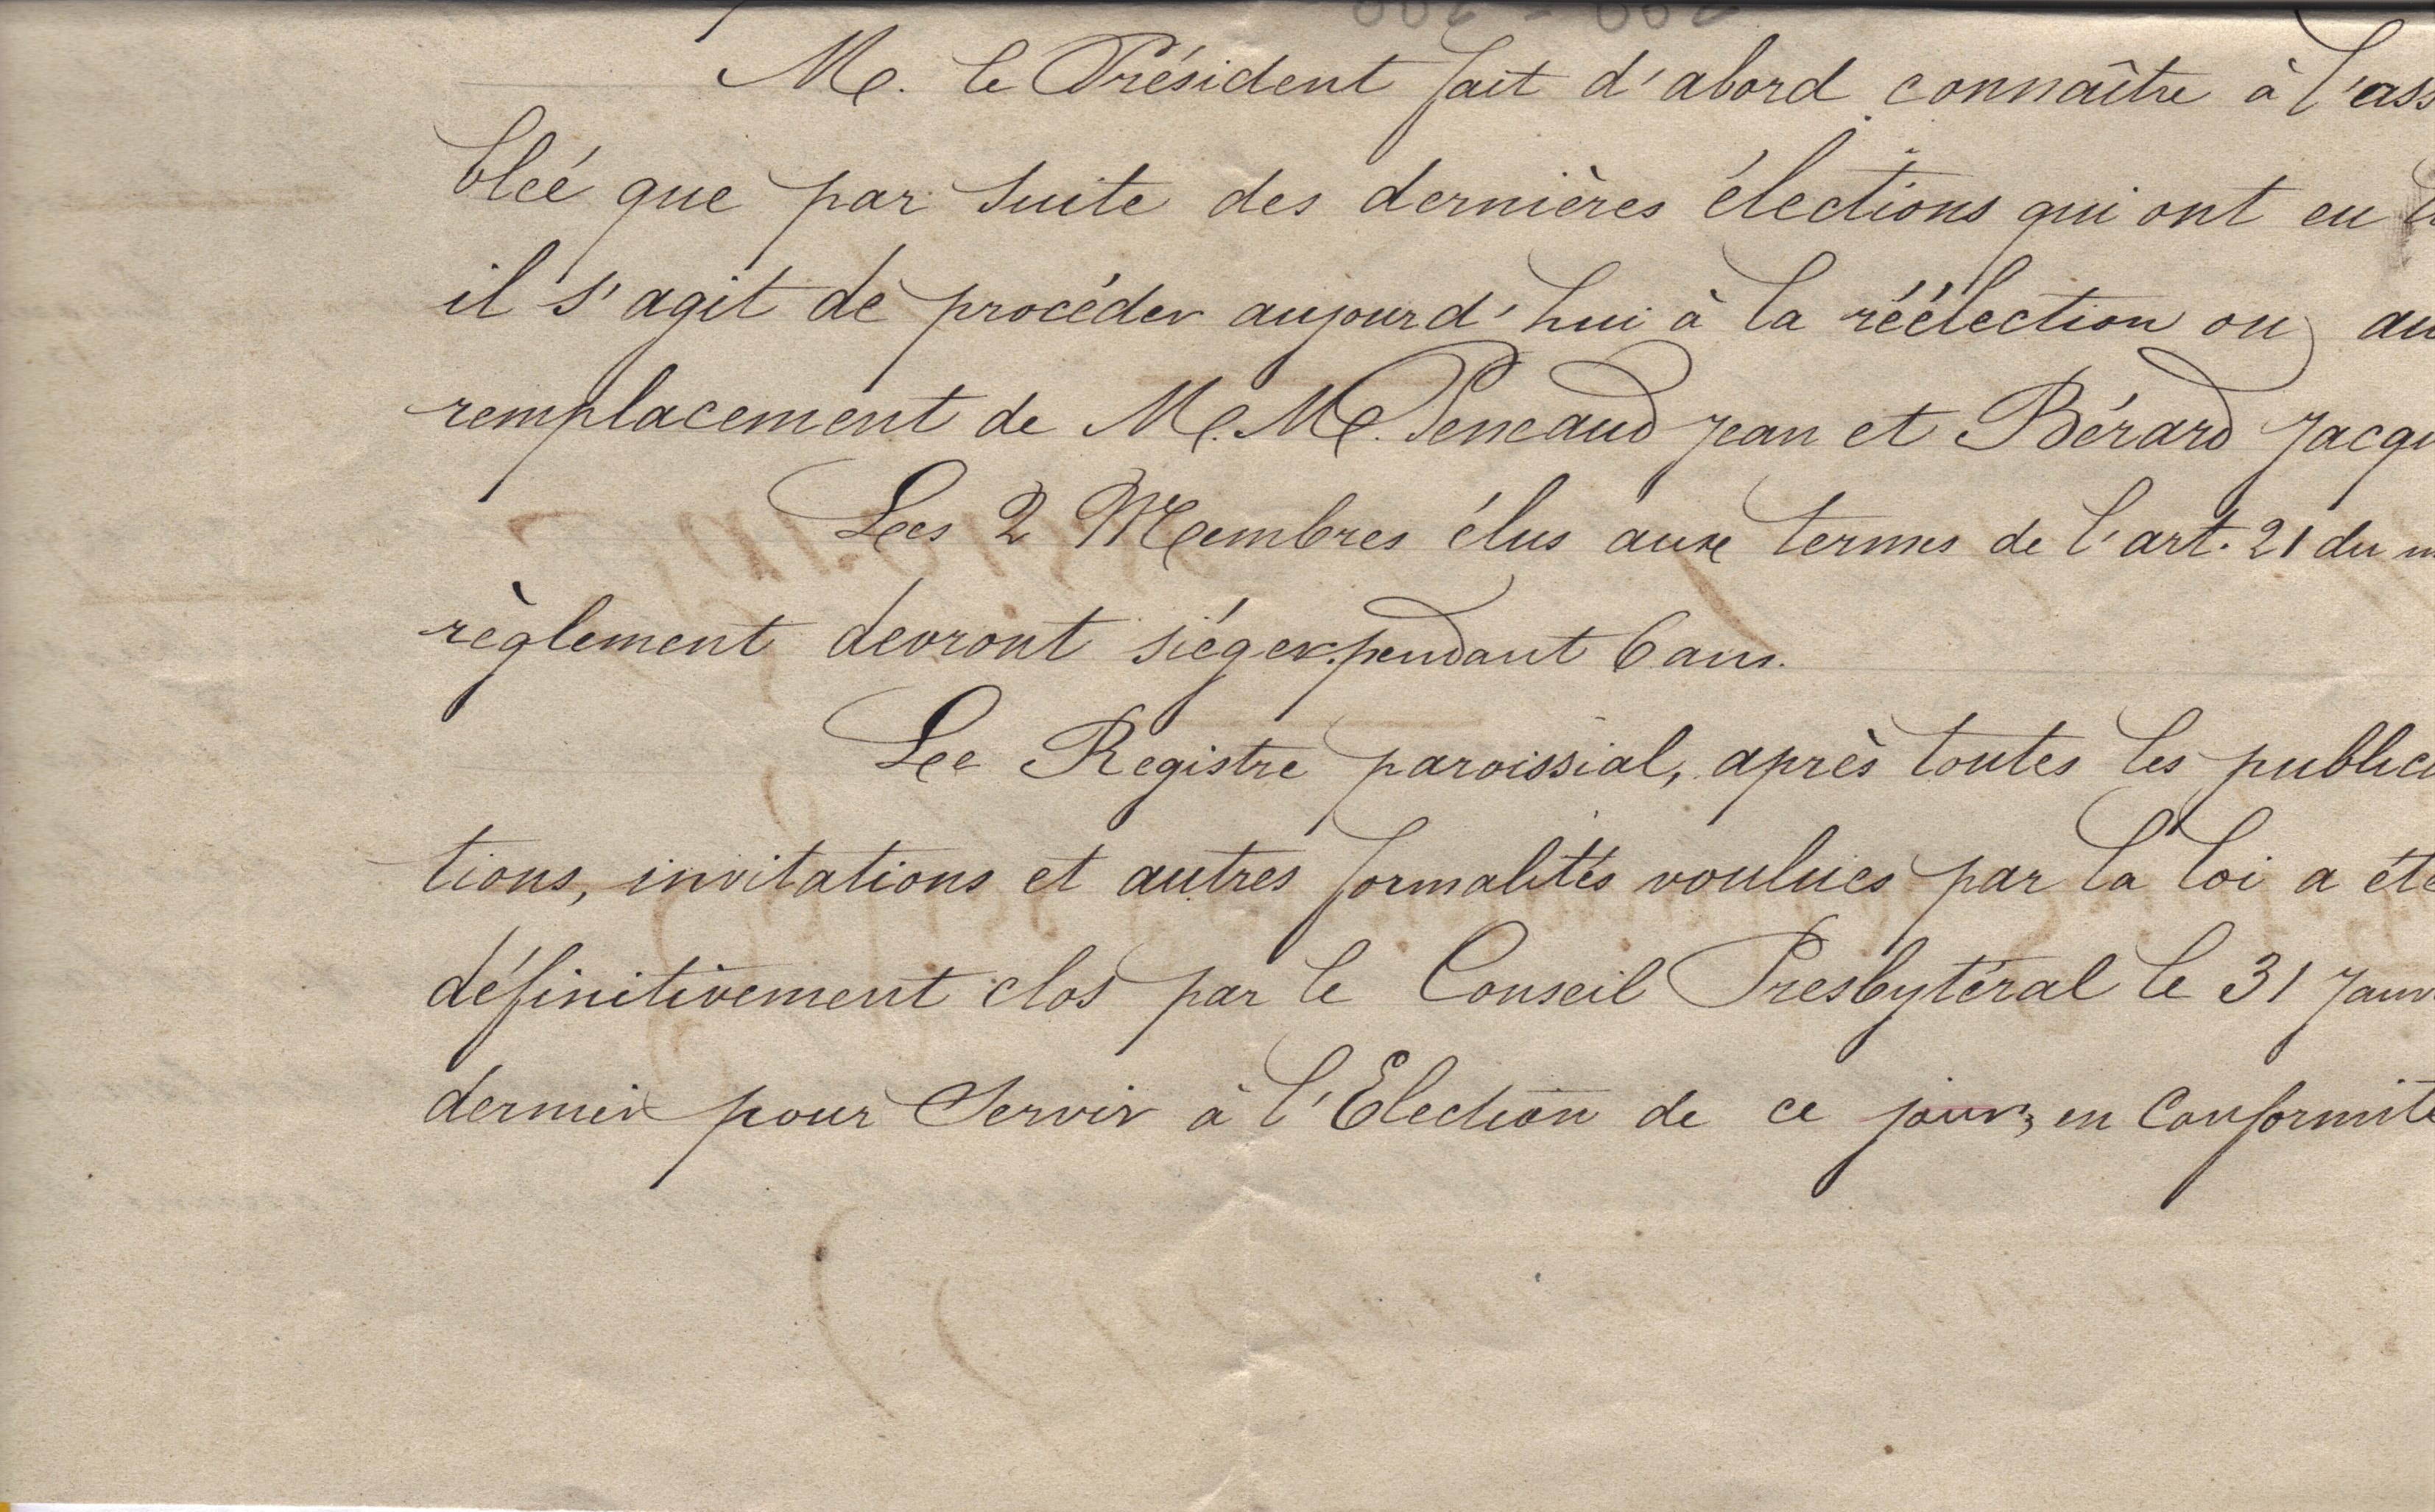 M. le Président fait d'abord connaître à l'ass
blée que par suite des dernières élections qui ont eu
il s'agit de procéder aujourd'hui à la réélection ou au
remplacement de M.M. Peneaud Jean et Bérard Jacqu
Les 2 Membres élus aux termes de l'art. 21 du
règlement devront siéger pendant 6 ans.
Le Registre paroissial, après toutes les publica
tions, invitations et autres formalités voulues par la loi a été
définitivement clos par le Conseil Presbytéral le 31 Janv
dernier pour Servir à l'Election de ce jour, en Conformité